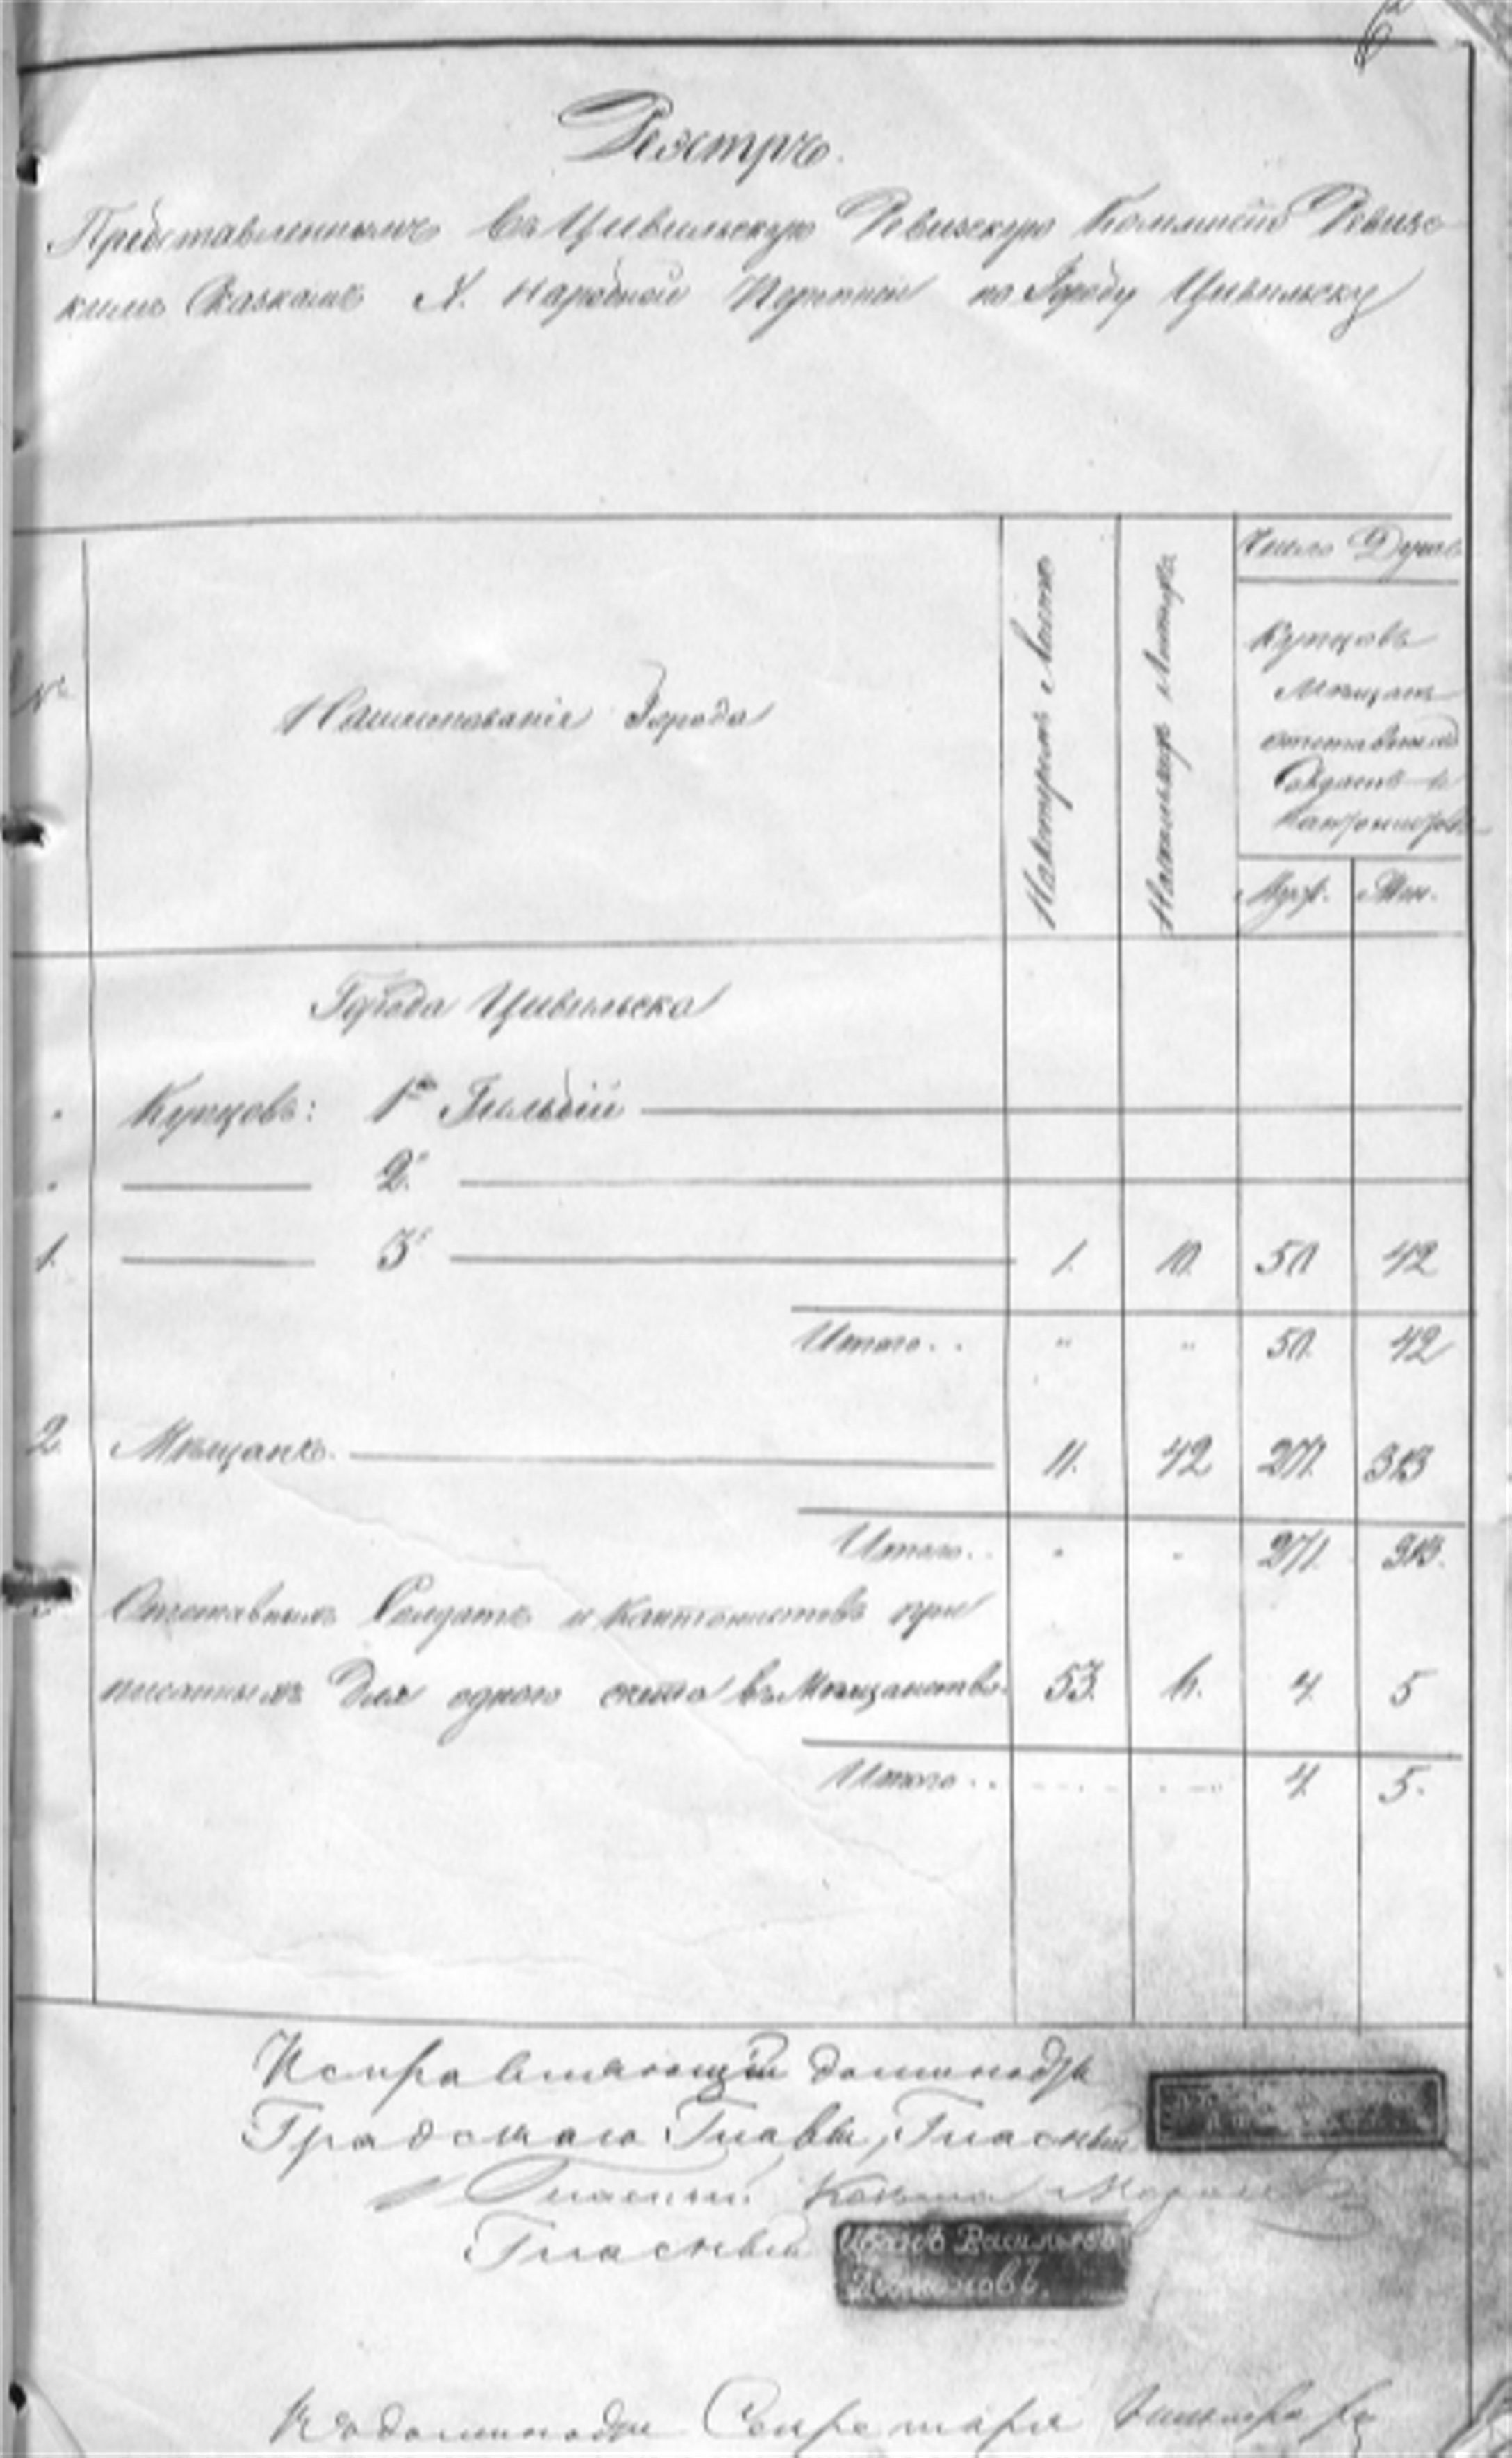 Реэстръ.
Представленнымъ въ Цивильскую Ревизскую Коммисію Ревизс-
кимъ Сказкамъ X. народной Переписи по Городу Цивильску
Число Душъ
Купцовъ
Мѣщанъ
отставныхъ
Солдатъ и
Кантонистовъ
№
Наименованіе Города
На которомъ Листѣ
На сколькихъ Листахъ
Муж.
Жен.
Города Цивильска
Купцовъ: 1й Гильдіи
2й
1. 3й 1. 10. 50. 42
Итого.. " " 50. 42
2. Мѣщанъ. 11. 42 271. 313
Итого.. 271. 313.
Отставныхъ Солдатъ и Кантонистовъ при
писанныхъ для одного счета въ Мѣщанство. 53. 4. 5
Итого.. 4. 5.
Исправляющій должность
Градскаго Главы, Гласный
Гласный Козьма
Гласный Иванъ Васильевъ
Въ должности Секретаря